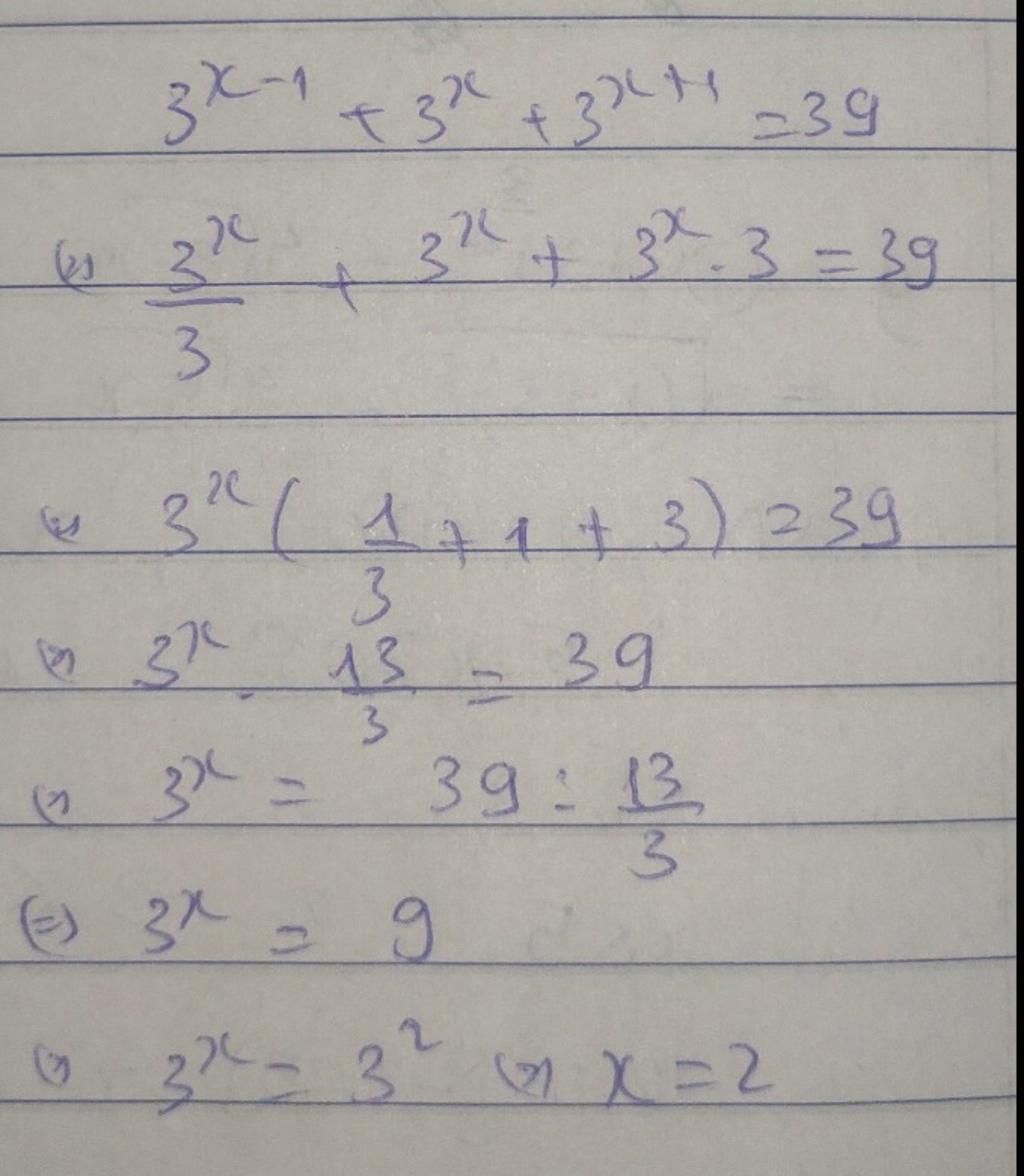 3^{x-1} + 3^x + 3^{x+1} = 39
(=) \frac{3^x}{3} + 3^x + 3^x . 3 = 39
(=) 3^x ( \frac{1}{3} + 1 + 3 ) = 39
(=) 3^x . \frac{13}{3} = 39
(=) 3^x = 39 : \frac{13}{3}
(=) 3^x = 9
(=) 3^x = 3^2 (=) x = 2